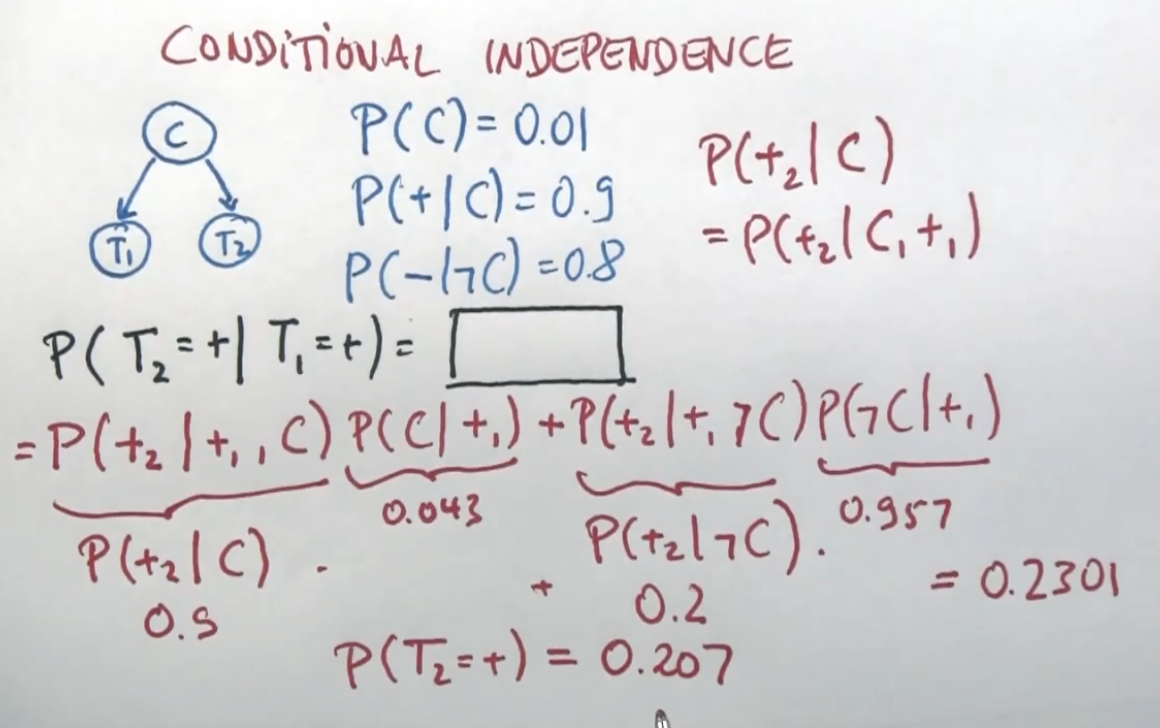 CONDITIONAL INDEPENDENCE
C
T₁ T₂
P(C) = 0.01
P(+|C) = 0.9
P(-|¬C) = 0.8
P(+₂|C)
= P(+₂|C,+₁)
P(T₂=+|T₁=+) =
= P(+₂|+₁,C) P(C|+₁) + P(+₂|+₁ ¬C) P(¬C|+₁)
0.043 0.957
P(+₂|C) · + P(+₂|¬C) · = 0.2301
0.9 0.2
P(T₂=+) = 0.207